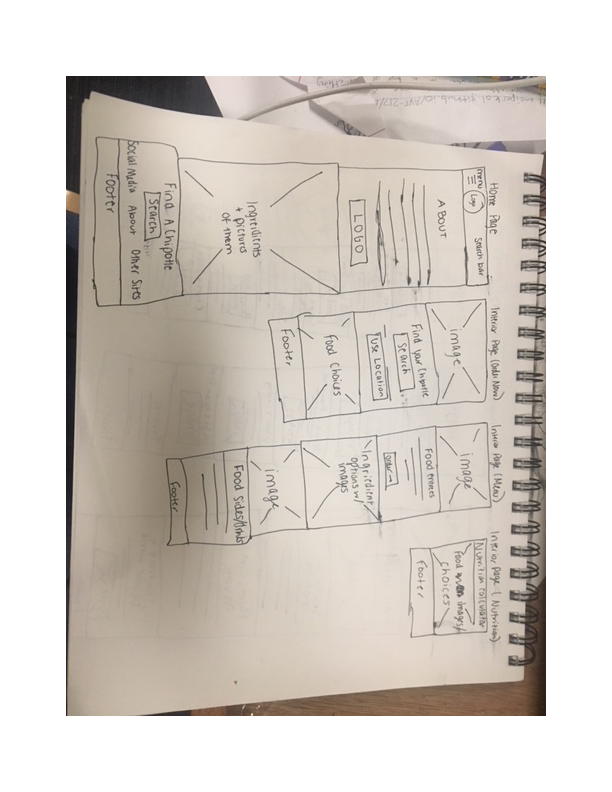 Home Page
menu
Logo
Search bar
ABOUT
LOGO
Ingredients
+ pictures
of them
Find A Chipotle
Search
Social Media About Other Sites
Footer
Interior Page (Order Now)
image
Find your Chipotle
Search
Use Location
Food Choices
Footer
Interior Page (Menu)
image
Food entrees
order
Ingriedient
options w/
images
image
Food sides/drinks
Footer
Interior Page (Nutrition)
Nutrition calculator
Food images/
choices
Footer